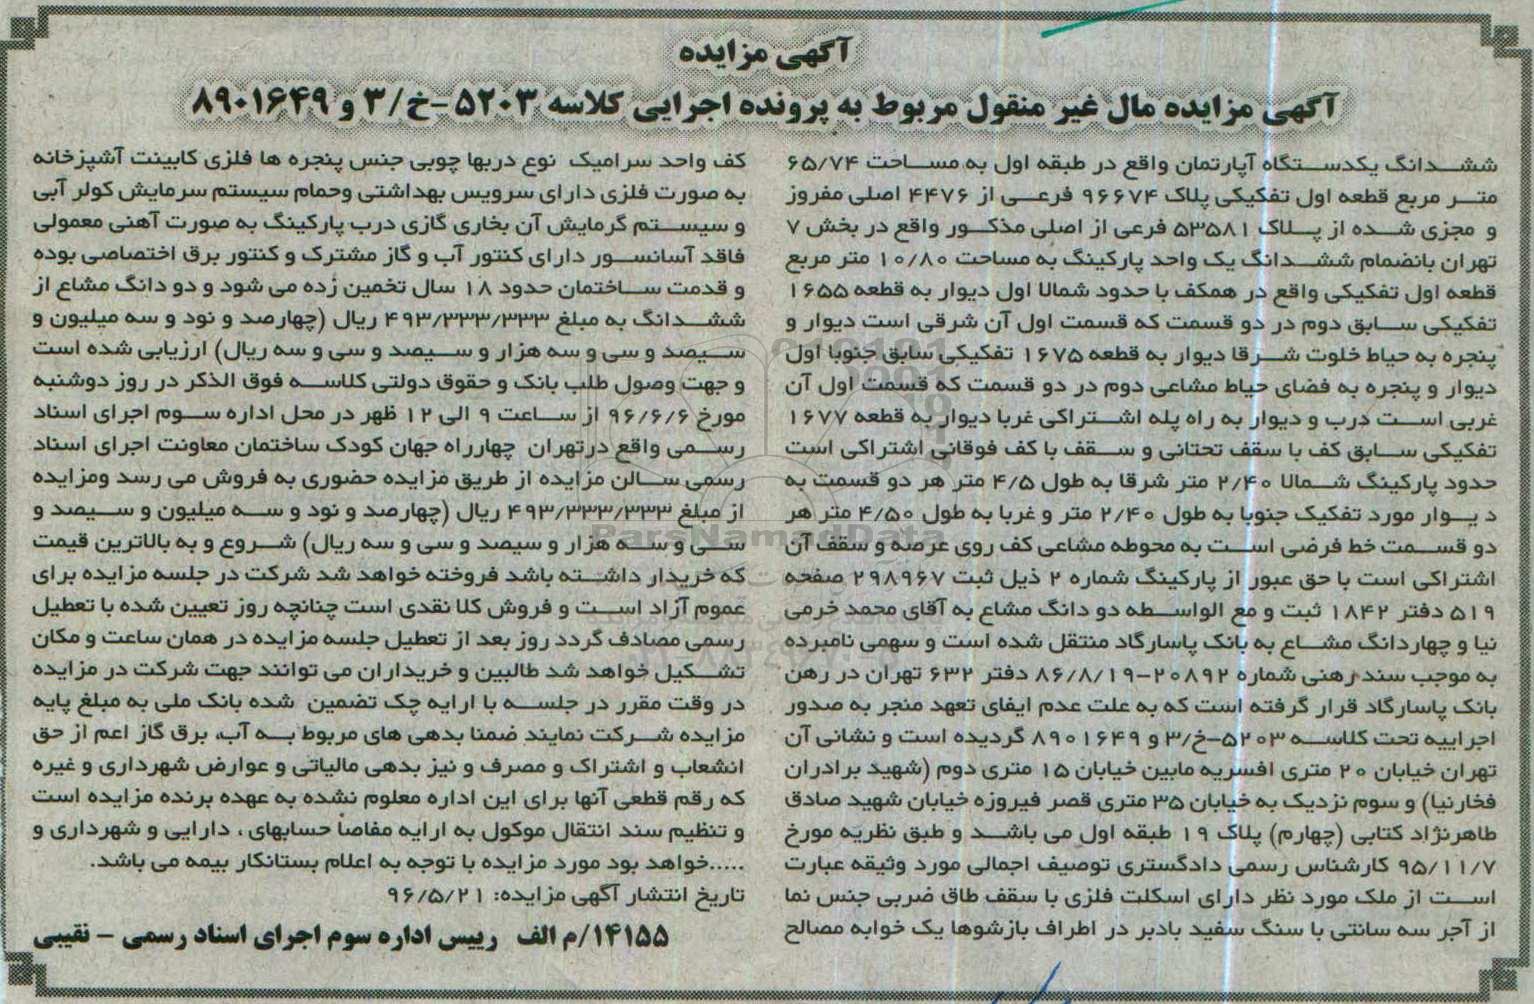 آگهی مزایده
آگهی مزایده مال غیر منقول مربوط به پرونده اجرایی کلاسه ۵۲۰۳-خ/۳ و ۸۹۰۱۶۴۹
ششدانگ یکدستگاه آپارتمان واقع در طبقه اول به مساحت ۶۵/۷۴
متر مربع قطعه اول تفکیکی پلاک ۹۶۶۷۴ فرعی از ۴۴۷۶ اصلی مفروز
و مجزی شده از پلاک ۵۳۵۸۱ فرعی از اصلی مذکور واقع در بخش ۷
تهران بانضمام ششدانگ یک واحد پارکینگ به مساحت ۱۰/۸۰ متر مربع
قطعه اول تفکیکی واقع در همکف با حدود شمالا اول دیوار به قطعه ۱۶۵۵
تفکیکی سابق دوم در دو قسمت که قسمت اول آن شرقی است دیوار و
پنجره به حیاط خلوت شرقا دیوار به قطعه ۱۶۷۵ تفکیکی سابق جنوبا اول
دیوار و پنجره به فضای حیاط مشاعی دوم در دو قسمت که قسمت اول آن
غربی است درب و دیوار به راه پله اشتراکی غربا دیوار به قطعه ۱۶۷۷
تفکیکی سابق کف با سقف تحتانی و سقف با کف فوقانی اشتراکی است
حدود پارکینگ شمالا ۲/۴۰ متر شرقا به طول ۴/۵ متر هر دو قسمت به
دیوار مورد تفکیک جنوبا به طول ۲/۴۰ متر و غربا به طول ۴/۵۰ متر هر
دو قسمت خط فرضی است به محوطه مشاعی کف روی عرصه و سقف آن
اشتراکی است با حق عبور از پارکینگ شماره ۲ ذیل ثبت ۲۹۸۹۶۷ صفحه
۵۱۹ دفتر ۱۸۴۲ ثبت و مع الواسطه دو دانگ مشاع به آقای محمد خرمی
نیا و چهاردانگ مشاع به بانک پاسارگاد منتقل شده است و سهمی نامبرده
به موجب سند رهنی شماره ۲۰۸۹۲-۸۶/۸/۱۹ دفتر ۶۳۲ تهران در رهن
بانک پاسارگاد قرار گرفته است که به علت عدم ایفای تعهد منجر به صدور
اجراییه تحت کلاسه ۵۲۰۳-خ/۳ و ۸۹۰۱۶۴۹ گردیده است و نشانی آن
تهران خیابان ۲۰ متری افسریه مابین خیابان ۱۵ متری دوم (شهید برادران
فخارنیا) و سوم نزدیک به خیابان ۳۵ متری قصر فیروزه خیابان شهید صادق
طاهرنژاد کتابی (چهارم) پلاک ۱۹ طبقه اول می باشد و طبق نظریه مورخ
۹۵/۱۱/۷ کارشناس رسمی دادگستری توصیف اجمالی مورد وثیقه عبارت
است از ملک مورد نظر دارای اسکلت فلزی با سقف طاق ضربی جنس نما
از آجر سه سانتی با سنگ سفید بادبر در اطراف بازشوها یک خوابه مصالح
کف واحد سرامیک نوع دربها چوبی جنس پنجره ها فلزی کابینت آشپزخانه
به صورت فلزی دارای سرویس بهداشتی وحمام سیستم سرمایش کولر آبی
و سیستم گرمایش آن بخاری گازی درب پارکینگ به صورت آهنی معمولی
فاقد آسانسور دارای کنتور آب و گاز مشترک و کنتور برق اختصاصی بوده
و قدمت ساختمان حدود ۱۸ سال تخمین زده می شود و دو دانگ مشاع از
ششدانگ به مبلغ ۴۹۳/۳۳۳/۳۳۳ ریال (چهارصد و نود و سه میلیون و
سیصد و سی و سه هزار و سیصد و سی و سه ریال) ارزیابی شده است
و جهت وصول طلب بانک و حقوق دولتی کلاسه فوق الذکر در روز دوشنبه
مورخ ۹۶/۶/۶ از ساعت ۹ الی ۱۲ ظهر در محل اداره سوم اجرای اسناد
رسمی واقع درتهران چهارراه جهان کودک ساختمان معاونت اجرای اسناد
رسمی سالن مزایده از طریق مزایده حضوری به فروش می رسد ومزایده
از مبلغ ۴۹۳/۳۳۳/۳۳۳ ریال (چهارصد و نود و سه میلیون و سیصد و
سی و سه هزار و سیصد و سی و سه ریال) شروع و به بالاترین قیمت
که خریدار داشته باشد فروخته خواهد شد شرکت در جلسه مزایده برای
عموم آزاد است و فروش کلا نقدی است چنانچه روز تعیین شده با تعطیل
رسمی مصادف گردد روز بعد از تعطیل جلسه مزایده در همان ساعت و مکان
تشکیل خواهد شد طالبین و خریداران می توانند جهت شرکت در مزایده
در وقت مقرر در جلسه با ارایه چک تضمین شده بانک ملی به مبلغ پایه
مزایده شرکت نمایند ضمنا بدهی های مربوط به آب، برق گاز اعم از حق
انشعاب و اشتراک و مصرف و نیز بدهی مالیاتی و عوارض شهرداری و غیره
که رقم قطعی آنها برای این اداره معلوم نشده به عهده برنده مزایده است
و تنظیم سند انتقال موکول به ارایه مفاصا حسابهای ، دارایی و شهرداری و
.....خواهد بود مورد مزایده با توجه به اعلام بستانکار بیمه می باشد.
تاریخ انتشار آگهی مزایده: ۹۶/۵/۲۱
۱۴۱۵۵/م الف رییس اداره سوم اجرای اسناد رسمی - نقیبی
ParsNamadData